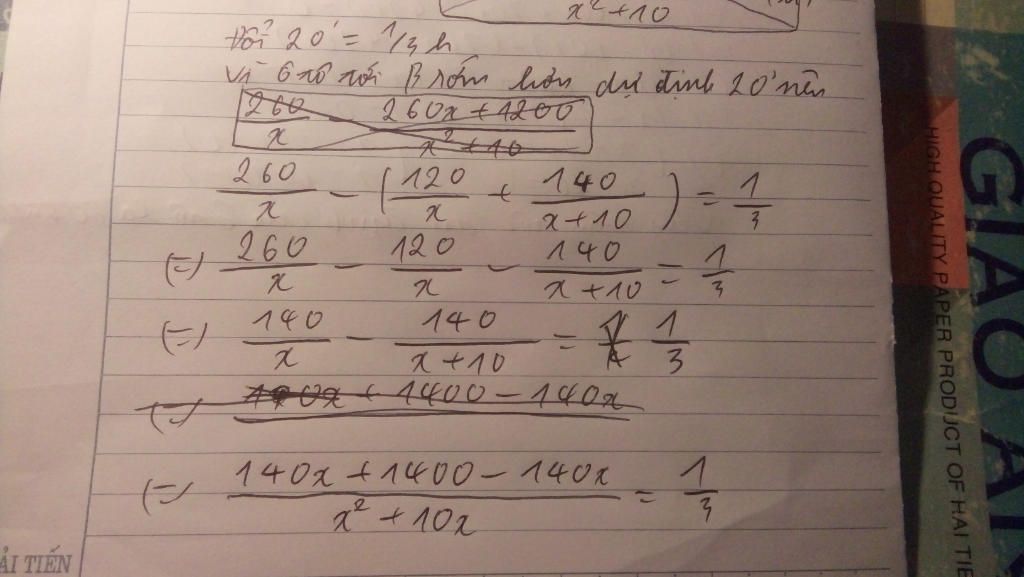 x² + 10
Đổi 20' = 1/3 h
Vì ô tô tới B sớm hơn dự định 20' nên
260/x 260x + 1200/x² + 10
260/x - (120/x + 140/x+10) = 1/3
(=) 260/x - 120/x - 140/x+10 = 1/3
(=) 140/x - 140/x+10 = 1/3
(=) 140x + 1400 - 140x
(=) 140x + 1400 - 140x/x² + 10x = 1/3
ẢI TIẾN
HIGH QUALITY PAPER PRODUCT OF HAI TIẾ
GIAO ÁN